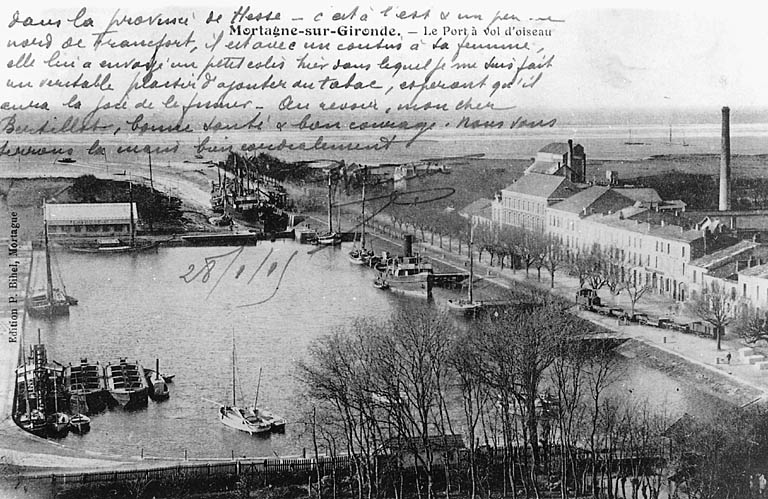 dans la province de Hesse – c'est à l'est & un peu
nord de Francfort, il est avec un cousin à sa femme,
Mortagne-sur-Gironde. — Le Port à vol d'oiseau
elle lui a envoyé un petit colis hier dans lequel je me suis fait
un veritable plaisir d'ajouter du tabac, espérant qu'il
aura la joie de le fumer – Au revoir, mon cher
bonne santé & bon courage. Nous vous
serrons la main bien cordialement
28/1/05
Edition P. Bibel, Mortagne